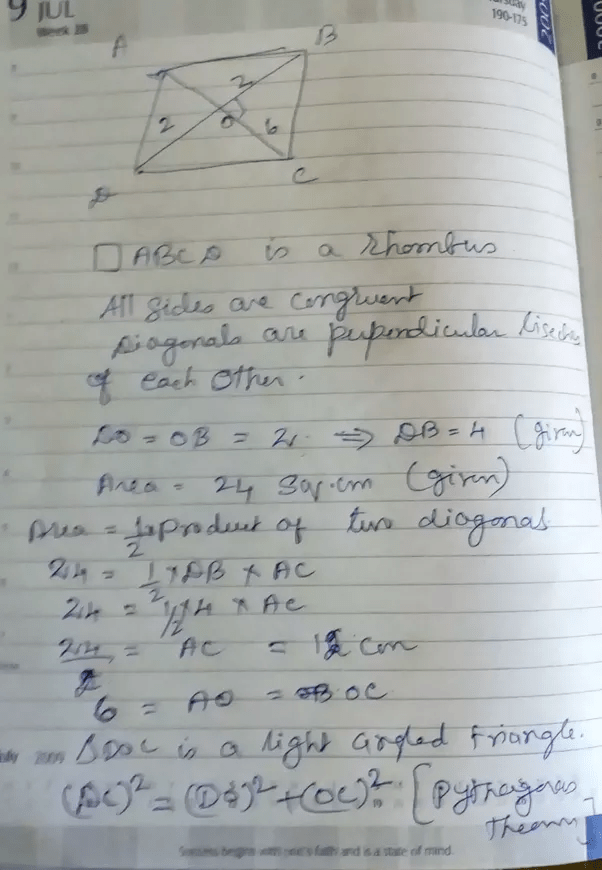 9 JUL
Week 28
190-175
2009
A
B
2
2
O
6
C
D
□ ABCD is a Rhombus
All sides are congruent
Diagonals are perpendicular bisectors
of each other.
DO = OB = 2. ⇒ DB = 4 (given)
Area = 24 Sq.cm (given)
Area = 1/2 x product of two diagonals
24 = 1/2 x DB x AC
24 = 1/2 x 4 x AC
24/2 = AC = 12 cm
6 = AO = OC
ΔDOC is a right angled triangle.
(DC)² = (DO)² + (OC)² [Pythagoras
Theorem]
2009
Success begins with one's faith and is a state of mind.